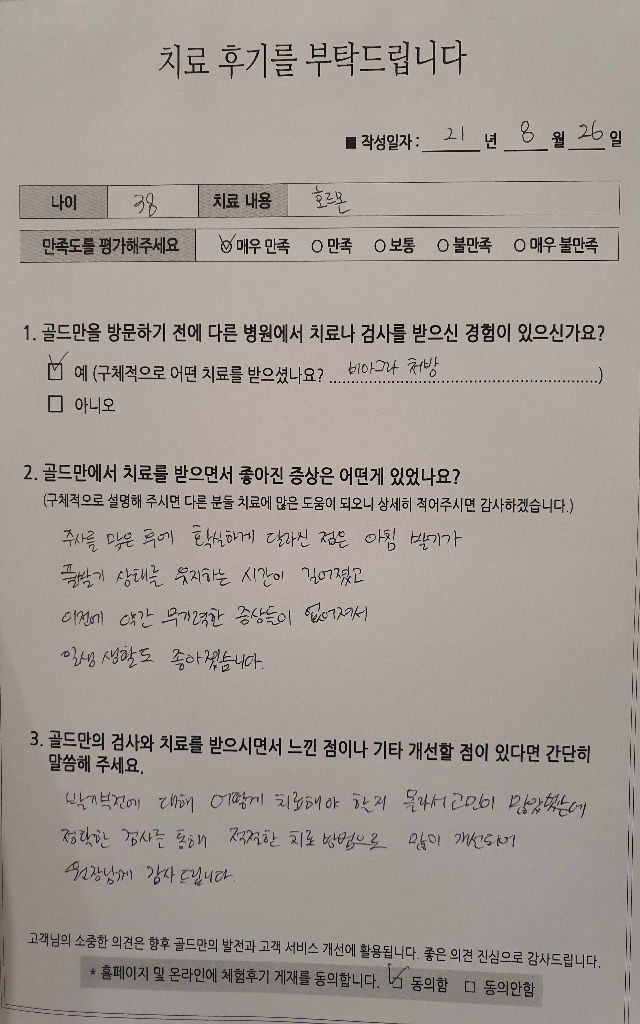 치료 후기를 부탁드립니다
■ 작성일자 : 21 년 8 월 26 일
나이 38 치료 내용 호르몬
만족도를 평가해주세요 매우 만족 만족 보통 불만족 매우 불만족
1. 골드만을 방문하기 전에 다른 병원에서 치료나 검사를 받으신 경험이 있으신가요?
예 (구체적으로 어떤 치료를 받으셨나요? 비아그라 처방)
아니오
2. 골드만에서 치료를 받으면서 좋아진 증상은 어떤게 있었나요?
(구체적으로 설명해 주시면 다른 분들 치료에 많은 도움이 되오니 상세히 적어주시면 감사하겠습니다.)
주사를 맞은 후에 확실하게 달라진 점은 아침 발기가
풀발기 상태를 유지하는 시간이 길어졌고
이전에 약간 무기력한 증상들이 없어져서
일상 생활도 좋아졌습니다.
3. 골드만의 검사와 치료를 받으시면서 느낀 점이나 기타 개선할 점이 있다면 간단히
말씀해 주세요.
발기부전에 대해 어떻게 치료해야 한지 몰라서 고민이 많았었는데
정확한 검사를 통해 적절한 치료 방법으로 많이 개선되어
원장님께 감사드립니다.
고객님의 소중한 의견은 향후 골드만의 발전과 고객 서비스 개선에 활용됩니다. 좋은 의견 진심으로 감사드립니다.
* 홈페이지 및 온라인에 체험후기 게재를 동의합니다. 동의함 동의안함